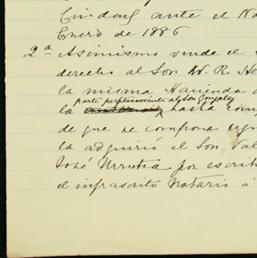 Ciudad ante el No
Enero de 1886
2a Asimismo vende el
derecho al Son. W. R. He
la misma Hacienda
parte perteneciente al Son Gonzalez
la hasta com
de que se compone igu
la adquirió el Son. Val
José Urrutia por escrit
el infrascrito Notario á